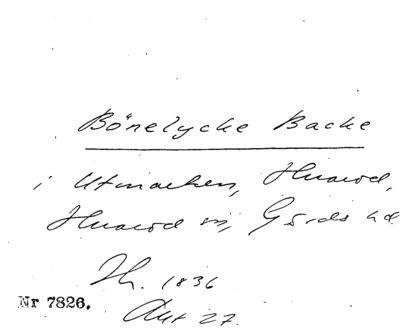 Bönelycke Backe
i Utmarken, Huaröd,
Huaröd sn, Gärds hd
Th. 1836
Nr 7826.
Akt 27.